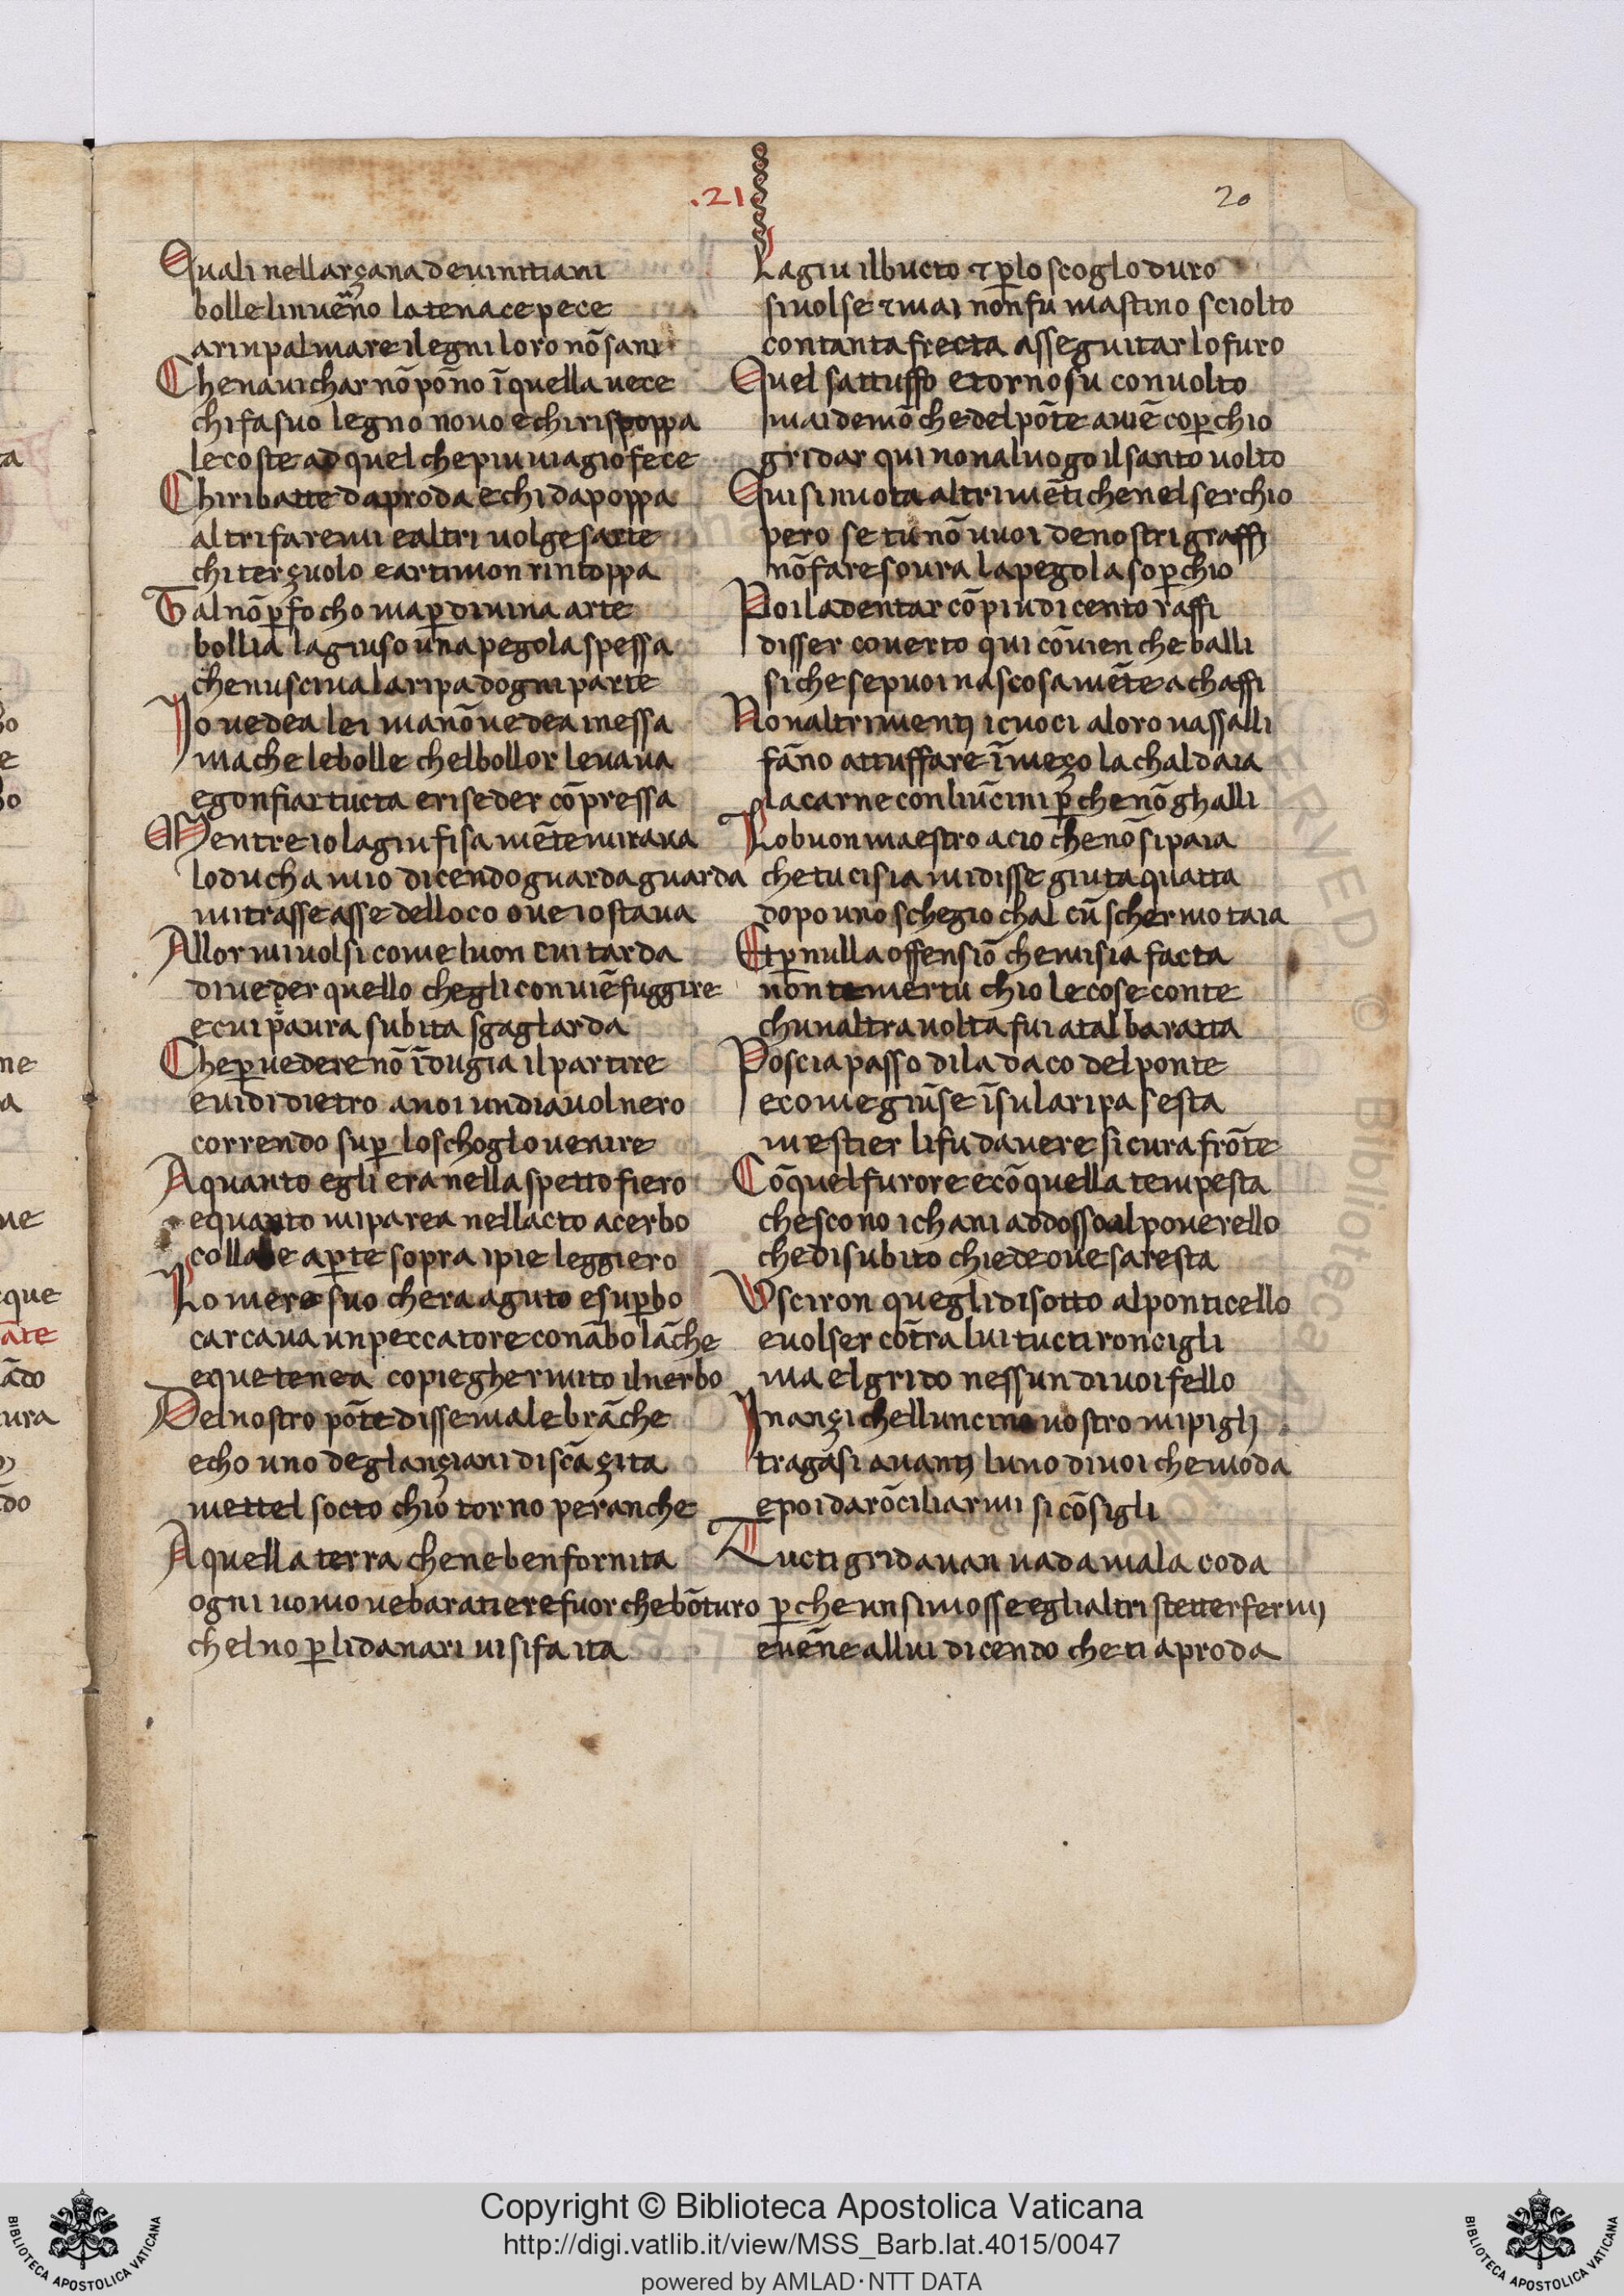 .21.
20
Quali nellarçana de uinitiani
bolle linuẽno la tenace pece
arinpalmare ilegni loro nõ sani
Che nauichar nõ põno ĩ quella uece
chi fa suo legno nouo e chi rispoppa
le coste ad quel che piu uiagio fece
Chi ribatte da proda e chi da poppa
altri fa remi e altri uolge sarte
chi terçuolo e artimon rintoppa
Tal nõ ꝑ focho ma ꝑ diuina arte
bollia lagiuso una pegola spessa
chenusciua la ripa dogni parte
Io uedea lei ma nõ uedea inessa
ma che le bolle chel bollor leuaua
e gonfiar tucta e riseder cõpressa
Mentre io lagiu fisa mẽte miraua
lo ducha mio dicendo guarda guarda
mi trasse asse del loco oue io staua
Allor mi uolsi come luon cui tarda
di ueder quello chegli conuiẽ fuggire
e cui paura subita sgagliarda
Che ꝑ uedere nõ ĩdugia il partire
e uidi dietro a noi un diauol nero
correndo suꝑ lo schoglo uenire
A quanto egli era nella spetto fiero
e quanto mi parea nellacto acerbo
collale aꝑte sopra i pie leggiero
Lo mere suo chera aguto e suꝑbo
carcaua un peccatore con ãbo lãche
e que tenea co pie ghermito il nerbo
Del nostro põte disse malebrãche
echo uno deglançiani di scã çita
mettel socto chio torno per anche
A quella terra che ne ben fornita
ogni uomo ue baratiere fuor che bõturo
chel no ꝑ li danari ui si fa ita
Lagiu il bucto ⁊ ꝑ lo scoglo duro
si uolse ⁊ mai non fu mastino sciolto
con tanta frecta asseguitar lo furo
Quel sattuffo e torno su conuolto
mai demõ che del põte auiẽ coꝑchio
gridar qui non a luogo il santo uolto
Qui si nuota altrimẽti che nel serchio
pero se tu nõ uuoi de nostri graffi
nõ fare soura la pegola soꝑchio
Poi ladentar cõ piu di cento raffi
disser couerto qui cõuien che balli
si che se puoi nascosamẽte achaffi
Non altrimenti i cuoci a loro uassalli
fãno attuffare ĩ meço la chaldaia
la carne con liũcini ꝑ che nõ ghalli
Lo buon maestro acio che nõ si paia
che tu ci sia mi disse giu taquatta
dopo uno schegio chal cũ schermo taia
Et ꝑ nulla offensiõ che mi sia facta
non temer tu chio le cose conte
chunaltra uolta fui a tal baratta
Poscia passo di la da co del ponte
e come giũse ĩ su la ripa sesta
mestier li fu dauere sicura frõte
Cõ quel furore e cõ quella tempesta
chescono i chani addosso al pouerello
che di subito chiede oue saresta
Usciron quegli di sotto al ponticello
e uolser cõtra lui tucti roncigli
ma el grido nessun di uoi fello
Inançi chelluncino uostro mi pigli
tragasi auanti luno di uoi che moda
e poi darõciliarmi si cõsigli
Tucti gridauan uada mala coda
ꝑ che un si mosse e gli altri stetter fermi
e uẽne allui dicendo che ti aproda
Copyright © Biblioteca Apostolica Vaticana
http://digi.vatlib.it/view/MSS_Barb.lat.4015/0047
powered by AMLAD·NTT DATA
BIBLIOTECA APOSTOLICA VATICANA
BIBLIOTECA APOSTOLICA VATICANA